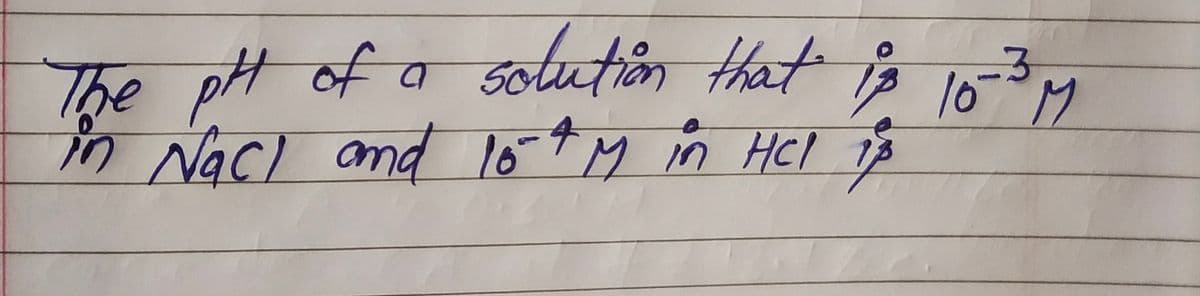 The pH of a solution that is 10⁻³ M
in NaCl and 10⁻⁴ M in HCl is